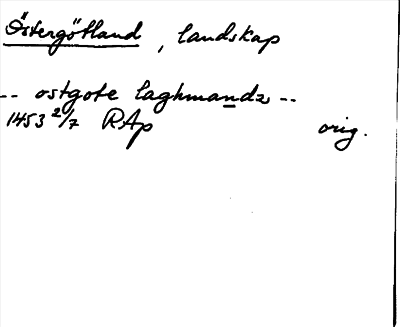 Östergötland, landskap
-- ostgote laghmandz --
1453 2/7 RAp orig.